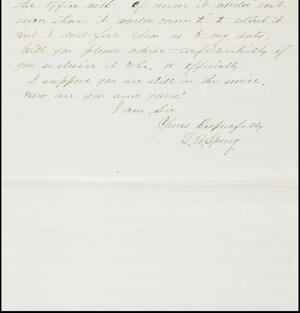 the office met. Of course it would cost
more than it would come to to collect it
but I don't feel clear as to my duty.
Will you please advise – confidentially if
you so desire it to be, or officially
I suppose you are still in the service.
How are you and yours?
I am, Sir,
Yours Respectfully